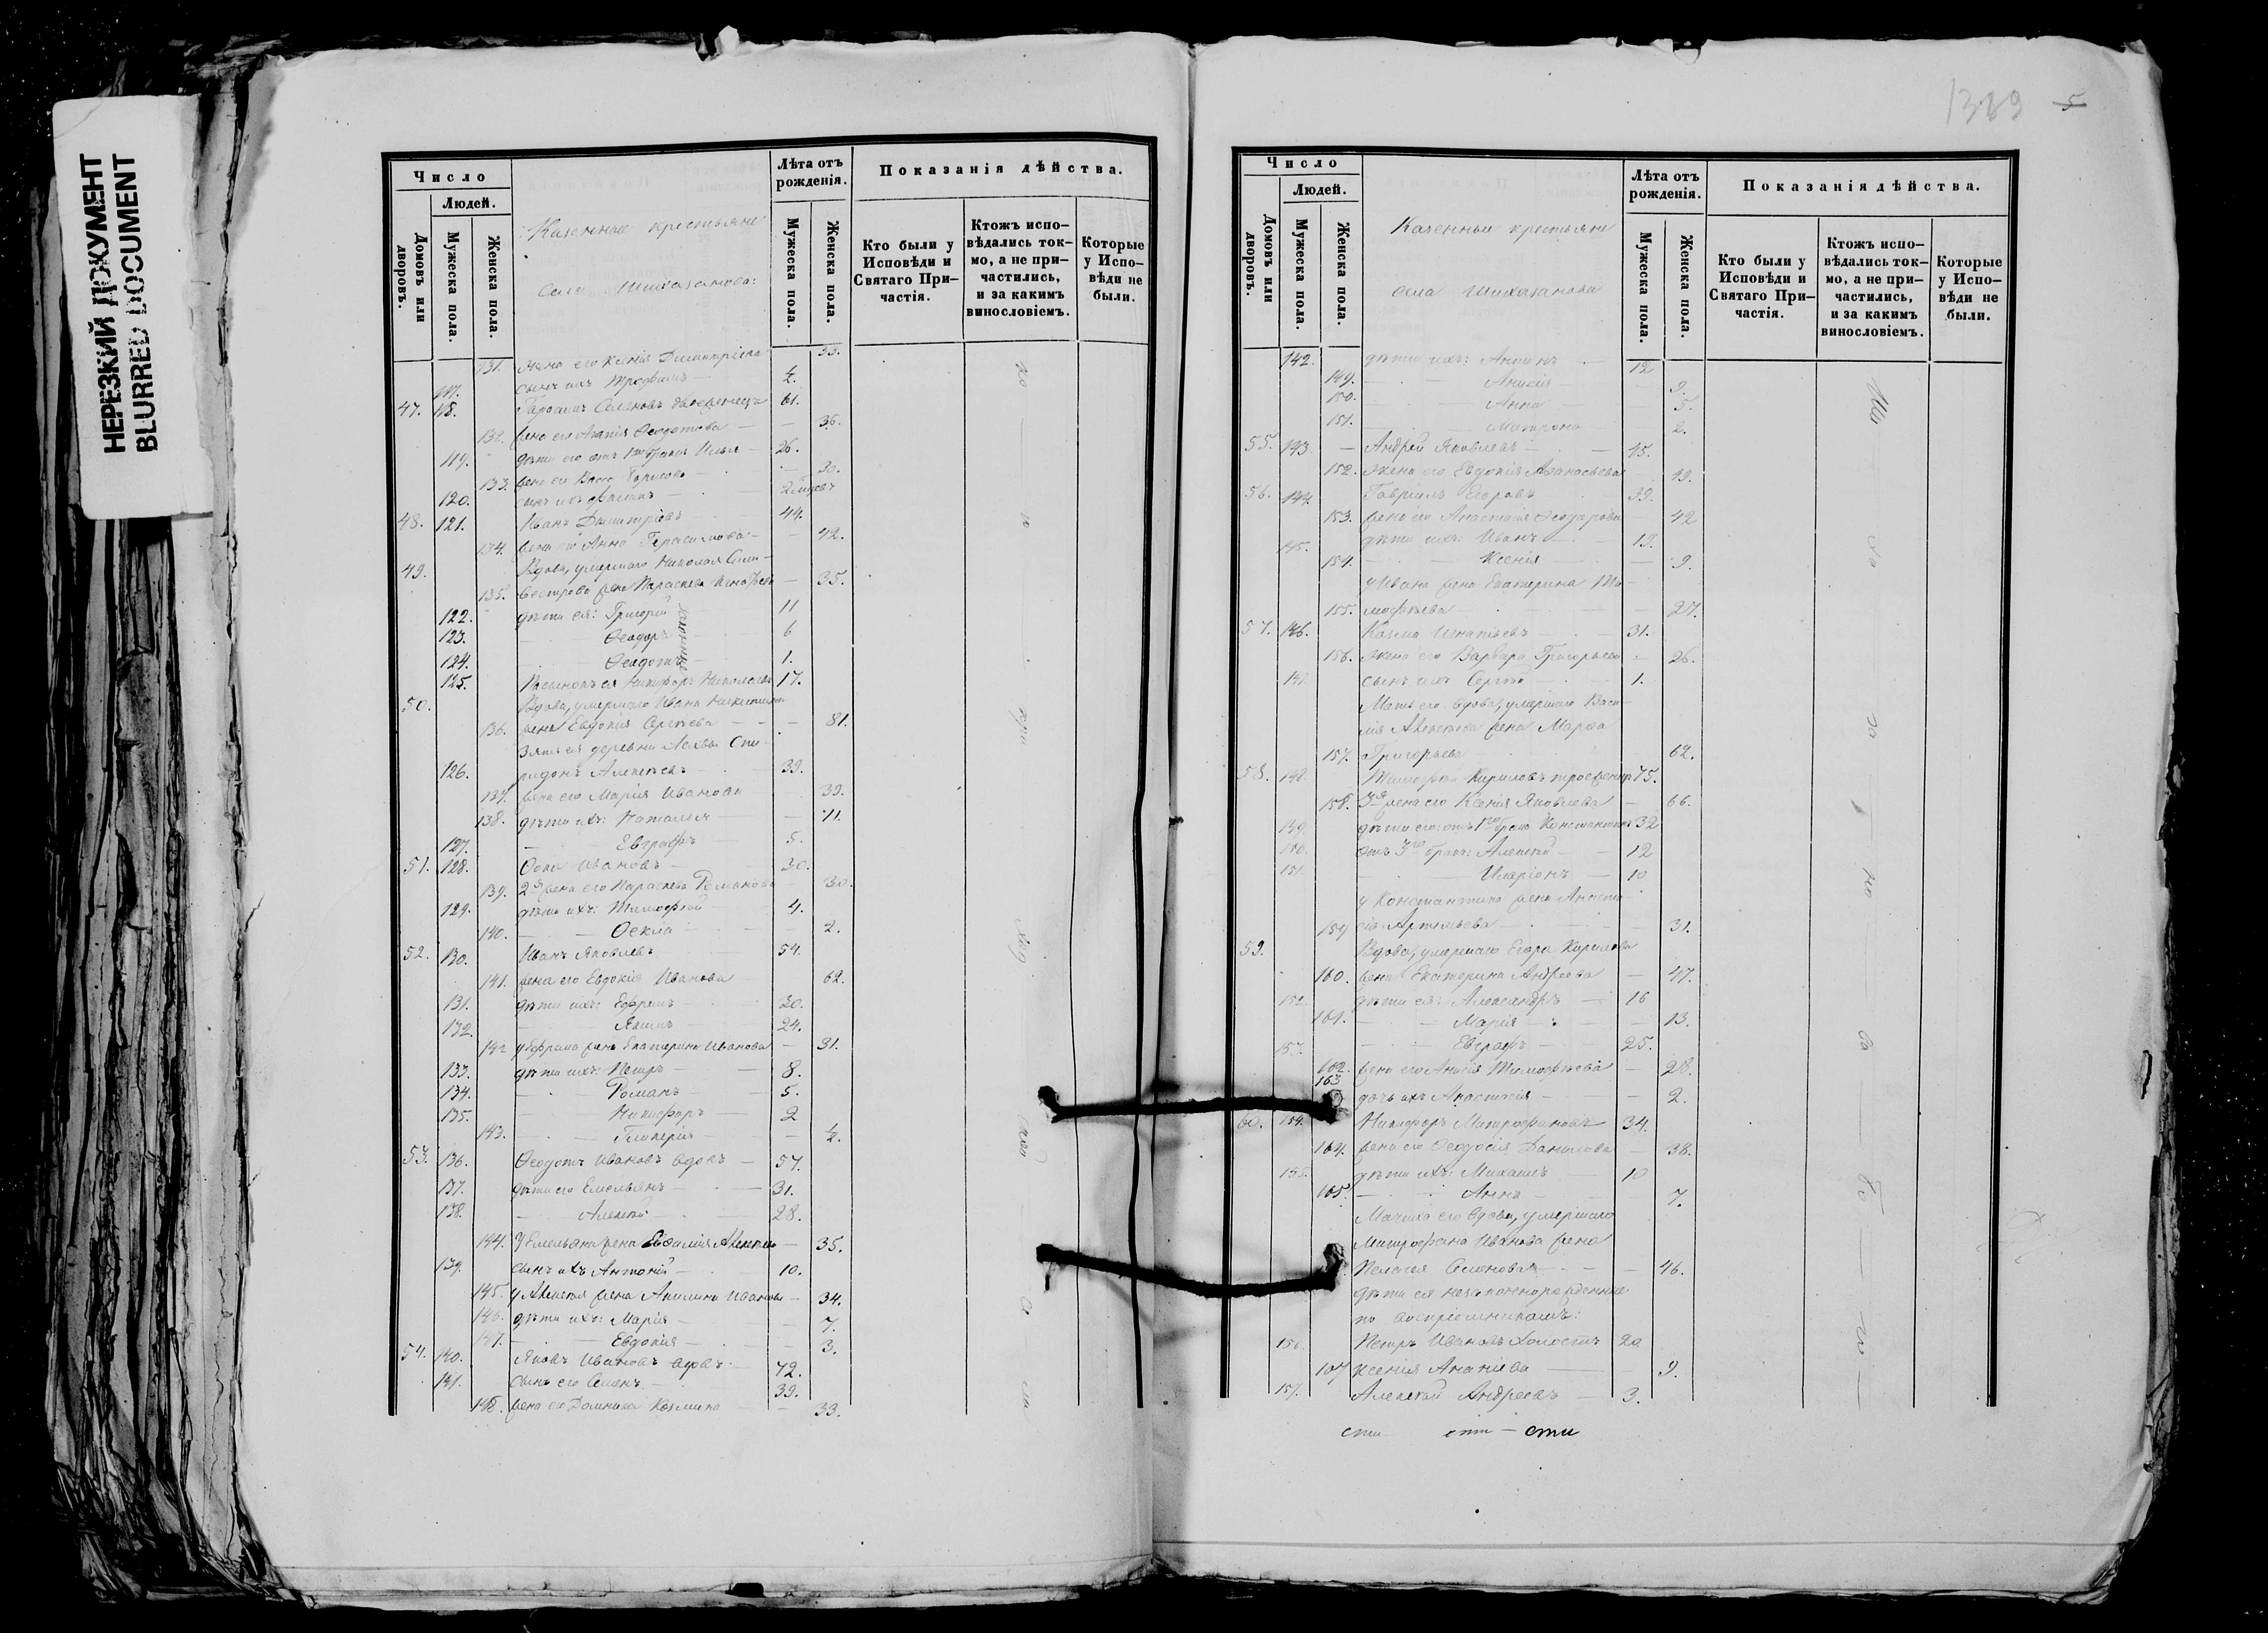 НЕРЕЗКИЙ ДОКУМЕНТ
BLURRED DOCUMENT
Число
Людей.
Домовъ или дворовъ.
Мужеска пола.
Женска пола.
Казенные крестьяне
Села Шихазанова:
Лѣта отъ рожденія.
Мужеска пола.
Женска пола.
Показанія дѣйства.
Кто были у Исповѣди и Святаго Причастія.
Ктожъ исповѣдались токмо, а не причастились, и за какимъ винословіемъ.
Которые у Исповѣди не были.
131. жена его Ксенія Димитріева 33.
117. сынъ ихъ Трофимъ — ½.
47. 118. Герасимъ Семеновъ 61.
132. жена его Агапія Ѳеодотова — 36.
119. дѣти его отъ 1го брака Илья — 26.
133. жена его 30.
120. сынъ ихъ
48. 121. Иванъ Димитріевъ — 44.
134. жена его Анна Герасимова — 42.
49. Вдова, умершаго Николая
135. жена Параскева Игнатьева — 35.
122. дѣти ея: Григорій 11
123. Ѳеодоръ 6
124. Ѳеодотъ 1.
125. Пасынокъ ея Никифоръ Николаевъ 17.
50. Вдова, умершаго Ивана Никитина
136. жена Евдокія Сергѣева — 81.
Зять ея деревни Спи-
126. ридонъ Алексѣевъ 39.
137. жена его Марія Иванова 39.
138. дѣти ихъ: Наталья — 11.
127. Евграфъ — 5.
51. 128. Ѳома Ивановъ — 30.
139. 2я жена его Параскева Романова — 30.
129. дѣти ихъ: Тимоѳей 4.
140. Ѳекла — 2.
52. 130. Иванъ Яковлевъ 54.
141. жена его Евдокія Иванова — 62.
131. дѣти ихъ: Ефремъ 30.
132. Якимъ 24.
142 у Ефрема жена Екатерина Иванова — 31.
133. дѣти ихъ: Петръ — 8.
134. Романъ — 5.
135. Никифоръ 2
143. Гликерія — ½.
53. 136. Ѳеодотъ Ивановъ вдовъ — 57.
137. дѣти его Емельянъ — 31.
138. Алексѣй 28.
144. У Емельяна жена Алексѣева — 35.
139. сынъ ихъ Антоній — 10.
145. у Алексѣя жена Акилина Иванова — 34.
146. дѣти ихъ: Марія — 7.
147. Евдокія — 3.
54. 140. Яковъ Ивановъ вдовъ. 72.
141. сынъ его Семенъ 39.
148. жена его Домника Козмина — 33.
1389 5
Число
Людей.
Домовъ или дворовъ.
Мужеска пола.
Женска пола.
Казенные крестьяне
села Шихазанова
Лѣта отъ рожденія.
Мужеска пола.
Женска пола.
Показанія дѣйства.
Кто были у Исповѣди и Святаго Причастія.
Ктожъ исповѣдались токмо, а не причастились, и за какимъ винословіемъ.
Которые у Исповѣди не были.
142. дѣти ихъ: Антонъ 12
149. Анисія 9.
150. Анна 5.
151. Матрона 2.
55. 143. — Андрей Яковлевъ — 45.
152. Жена его Евдокія Аѳанасьева 49.
56. 144. Гавріилъ Егоровъ 39.
153. жена его Анастасія Ѳеодорова 42
145. дѣти ихъ: Иванъ 19.
154. Ксенія 9.
у Ивана жена Екатерина Ти-
155. моѳѣева — 27.
57. 146. Козма Игнатьевъ 31.
156. Жена его Варвара Григорьева — 26.
147. сынъ ихъ Сергѣй 1.
Мать его вдова, умершаго Васи-
лія Алексѣева жена Марѳа
157. Григорьева 62.
58. 148. Тимоѳей Кириловъ троеженецъ 75.
158. 3я жена его Ксенія Яковлева — 66.
149. дѣти его: отъ 1го брака Константинъ 32
150. отъ 3го брака: Алексѣй 12
151. Иларіонъ — 10
у Константина жена Анаста-
159 сія Артемьева 31.
59. Вдова, умершаго Егора Кирилова
160. жена Екатерина Андреева — 47.
152. дѣти ея: Александръ — 16
161. Марія — 13.
153. Евграфъ 25.
162. жена его Анисія Тимоѳѣева — 28.
163 дочь ихъ Анастасія — 2.
60. 154. Никифоръ Митрофановъ 34.
164. жена его Ѳеодосія Данилова — 38.
155. дѣти ихъ: Михаилъ — 10
165. Анна 7.
Мачиха его вдова, умершаго
Митрофана Иванова жена
Пелагея Семенова — 46.
дѣти ея незаконнорожденные
по воспріемникамъ:
156. Петръ Ивановъ холостъ 20
167 Ксенія Ананіева — 9.
157. Алексѣй Андреевъ — 3.
сти сти — сти